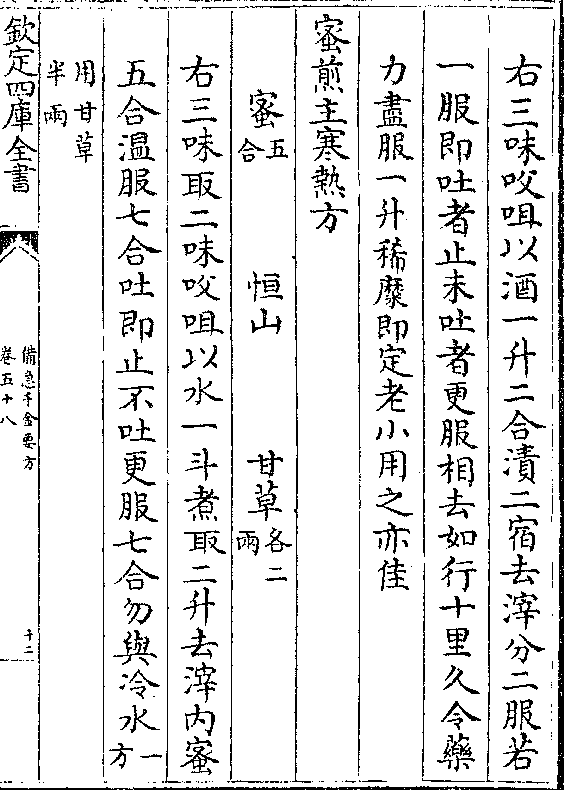 右三味㕮咀以酒一升二合漬二宿去滓分二服若
一服即吐者止未吐者更服相去如行十里久令藥
力盡服一升稀糜即定老小用之亦佳
蜜煎主寒熱方
蜜五合　恒山　甘草各二兩
右三味取二味㕮咀以水一斗煮取二升去滓内蜜
五合温服七合吐即止不吐更服七合勿與冷水一方
用甘草半兩
欽定四庫全書
備急千金要方
卷五十八
十二